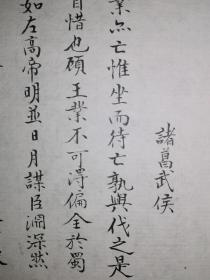 諸葛武侯
業亦亡惟坐而待亡孰與伐之是
自惜也顧王業不可淂偏全於蜀
如左高帝明並日月謀臣淵深然